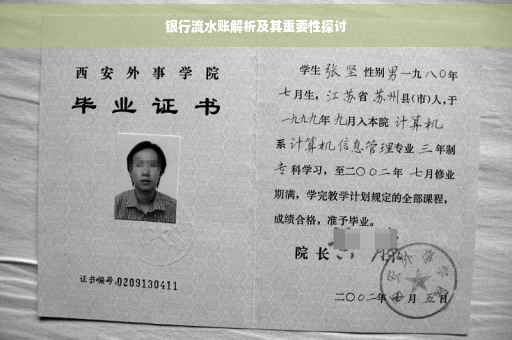 银行流水账解析及其重要性探讨
西安外事学院
毕业证书
证书编号:0209130411
学生 张坚 性别 男 一九八〇年
七月生，江苏省 苏州县(市)人，于
一九九九年 九月入本院 计算机
系 计算机信息管理专业 三 年制
专 科学习，至二〇〇二年 七月修业
期满，学完教学计划规定的全部课程，
成绩合格，准予毕业。
院长
二〇〇二年 月 五日